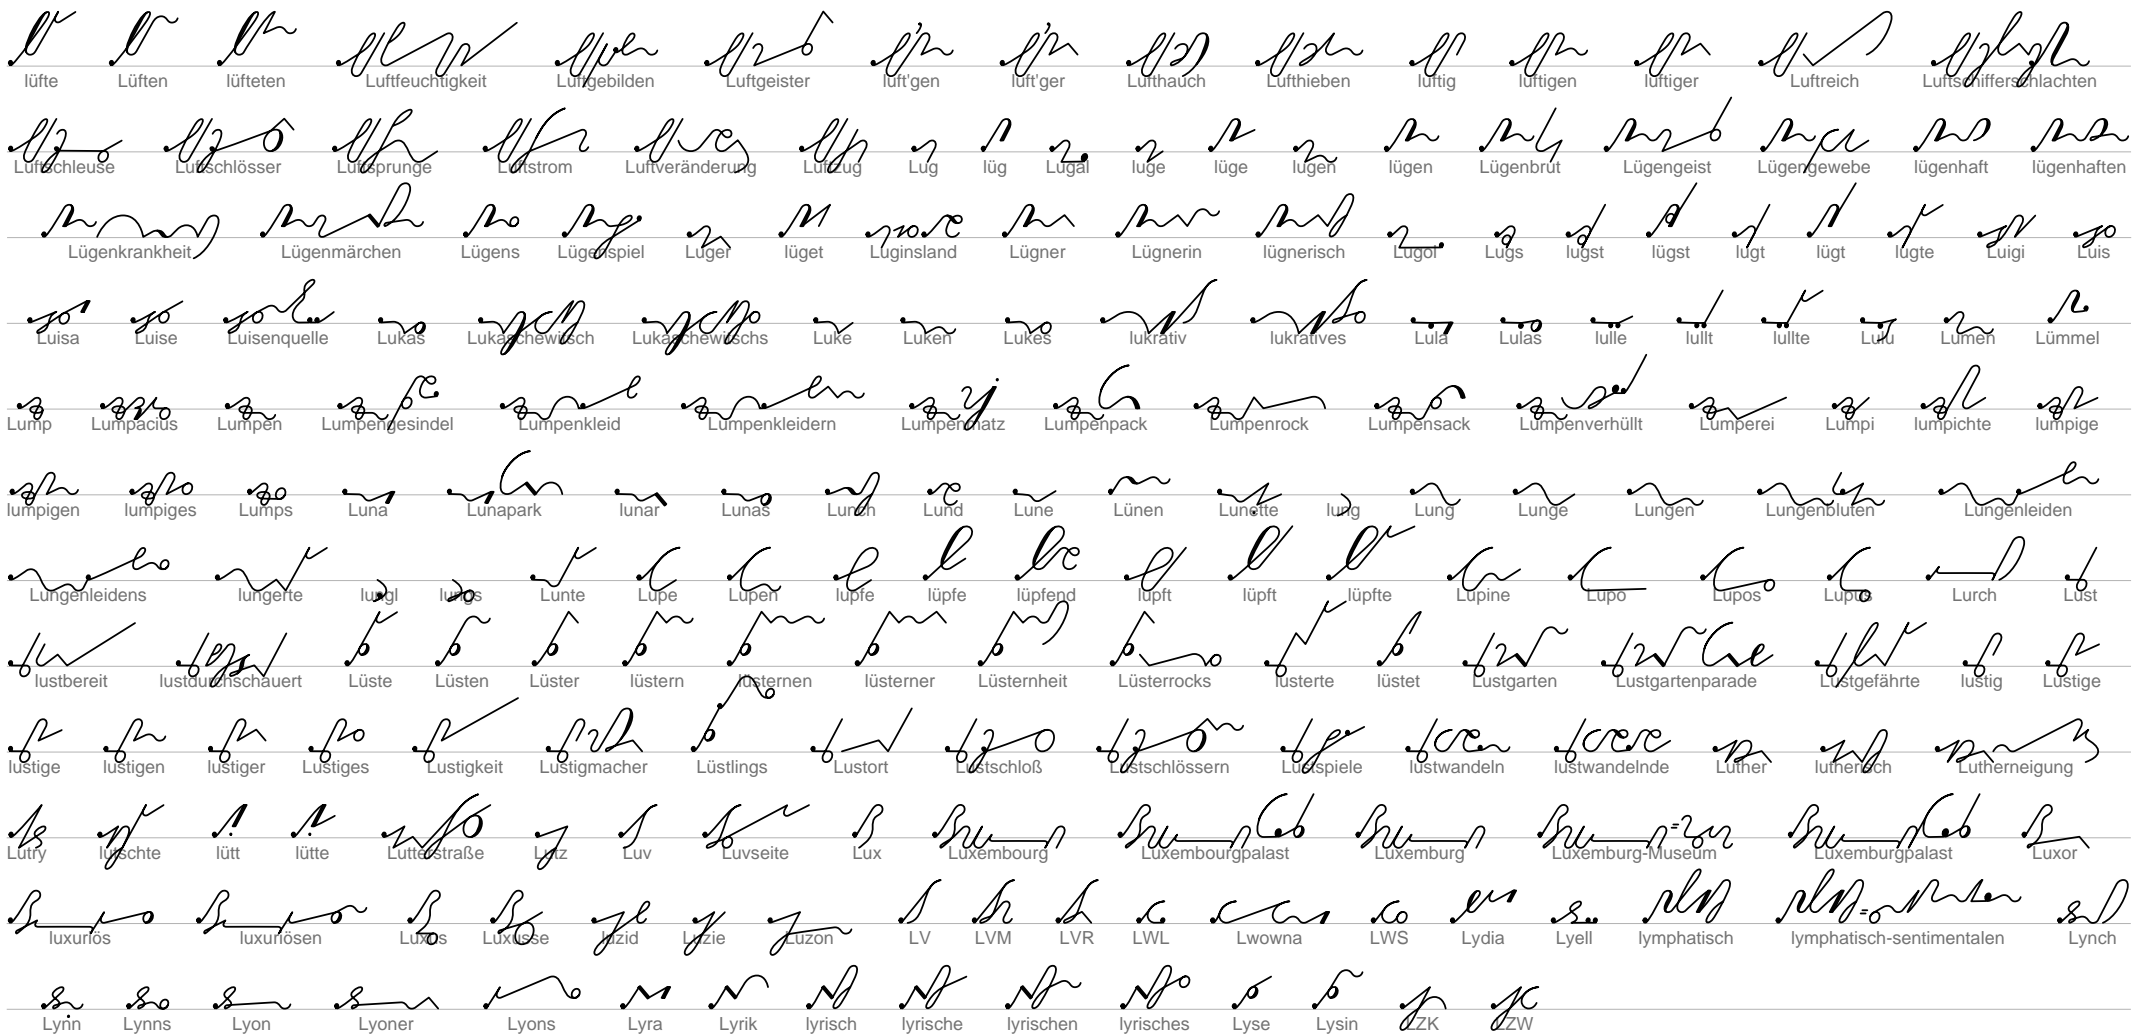 lüfte Lüften lüfteten Luftfeuchtigkeit Luftgebilden Luftgeister luft'gen luft'ger Lufthauch Lufthieben luftig luftigen luftiger Luftreich Luftschifferschlachten
Luftschleuse Luftschlösser Luftsprunge Luftstrom Luftveränderung Luftzug Lug lüg Lugal luge lüge lugen lügen Lügenbrut Lügengeist Lügengewebe lügenhaft lügenhaften
Lügenkrankheit Lügenmärchen Lügens Lügenspiel Luger lüget Luginsland Lügner Lügnerin lügnerisch Lugol Lugs lugst lügst lugt lügt lugte Luigi Luis
Luisa Luise Luisenquelle Lukas Lukaschewitsch Lukaschewitschs Luke Luken Lukes lukrativ lukratives Lula Lulas lulle lullt lullte Lulu Lumen Lümmel
Lump Lumpacius Lumpen Lumpengesindel Lumpenkleid Lumpenkleidern Lumpenmatz Lumpenpack Lumpenrock Lumpensack Lumpenverhüllt Lumperei Lumpi lumpichte lumpige
lumpigen lumpiges Lumps Luna Lunapark lunar Lunas Lunch Lund Lune Lünen Lunette lung Lung Lunge Lungen Lungenbluten Lungenleiden
Lungenleidens lungerte lungl lungs Lunte Lupe Lupen lupfe lüpfe lüpfend lupft lüpft lüpfte Lupine Lupo Lupos Lupus Lurch Lust
lustbereit lustdurchschauert Lüste Lüsten Lüster lüstern lüsternen lüsterner Lüsternheit Lüsterrocks lüsterte lüstet Lustgarten Lustgartenparade Lustgefährte lustig Lustige
lustige lustigen lustiger Lustiges Lustigkeit Lustigmacher Lüstlings Lustort Lustschloß Lustschlössern Lustspiele lustwandeln lustwandelnde Luther lutherisch Lutherneigung
Lutry lutschte lütt lütte Lutterstraße Lutz Luv Luvseite Lux Luxembourg Luxembourgpalast Luxemburg Luxemburg-Museum Luxemburgpalast Luxor
luxuriös luxuriösen Luxus Luxusse luzid Luzie Luzon LV LVM LVR LWL Lwowna LWS Lydia Lyell lymphatisch lymphatisch-sentimentalen Lynch
Lynn Lynns Lyon Lyoner Lyons Lyra Lyrik lyrisch lyrische lyrischen lyrisches Lyse Lysin LZK LZW